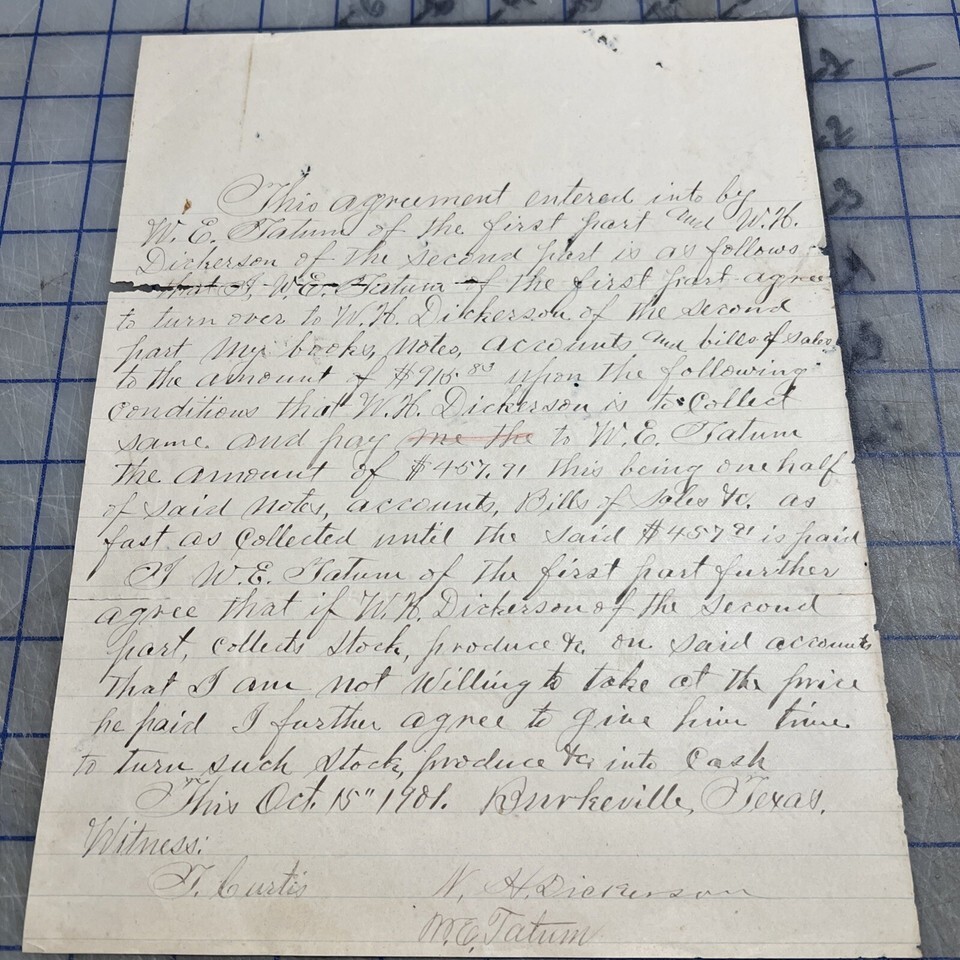 This agreement entered into by
W. E. Tatum of the first part and W. H.
Dickerson of the second part is as follows
that I, W. E. Tatum of the first part agree
to turn over to W. H. Dickerson of the second
part my books, notes, accounts and bills of sales
to the amount of $915.83 upon the following
conditions that W. H. Dickerson is to Collect
same and pay me the to W. E. Tatum
the amount of $457.91 this being one half
of said notes, accounts, Bills of Sales &c. as
fast as Collected until the said $457.91 is paid
I W. E. Tatum of the first part further
agree that if W. H. Dickerson of the second
part, collects stock, produce &c on said accounts
that I am not Willing to take at the price
he paid I further agree to give him time
to turn such stock, produce &c into Cash
This Oct. 15" 1901. Burkeville, Texas.
Witness:
T. Curtis W. H. Dickerson
W. E. Tatum
2
2
3
4
5